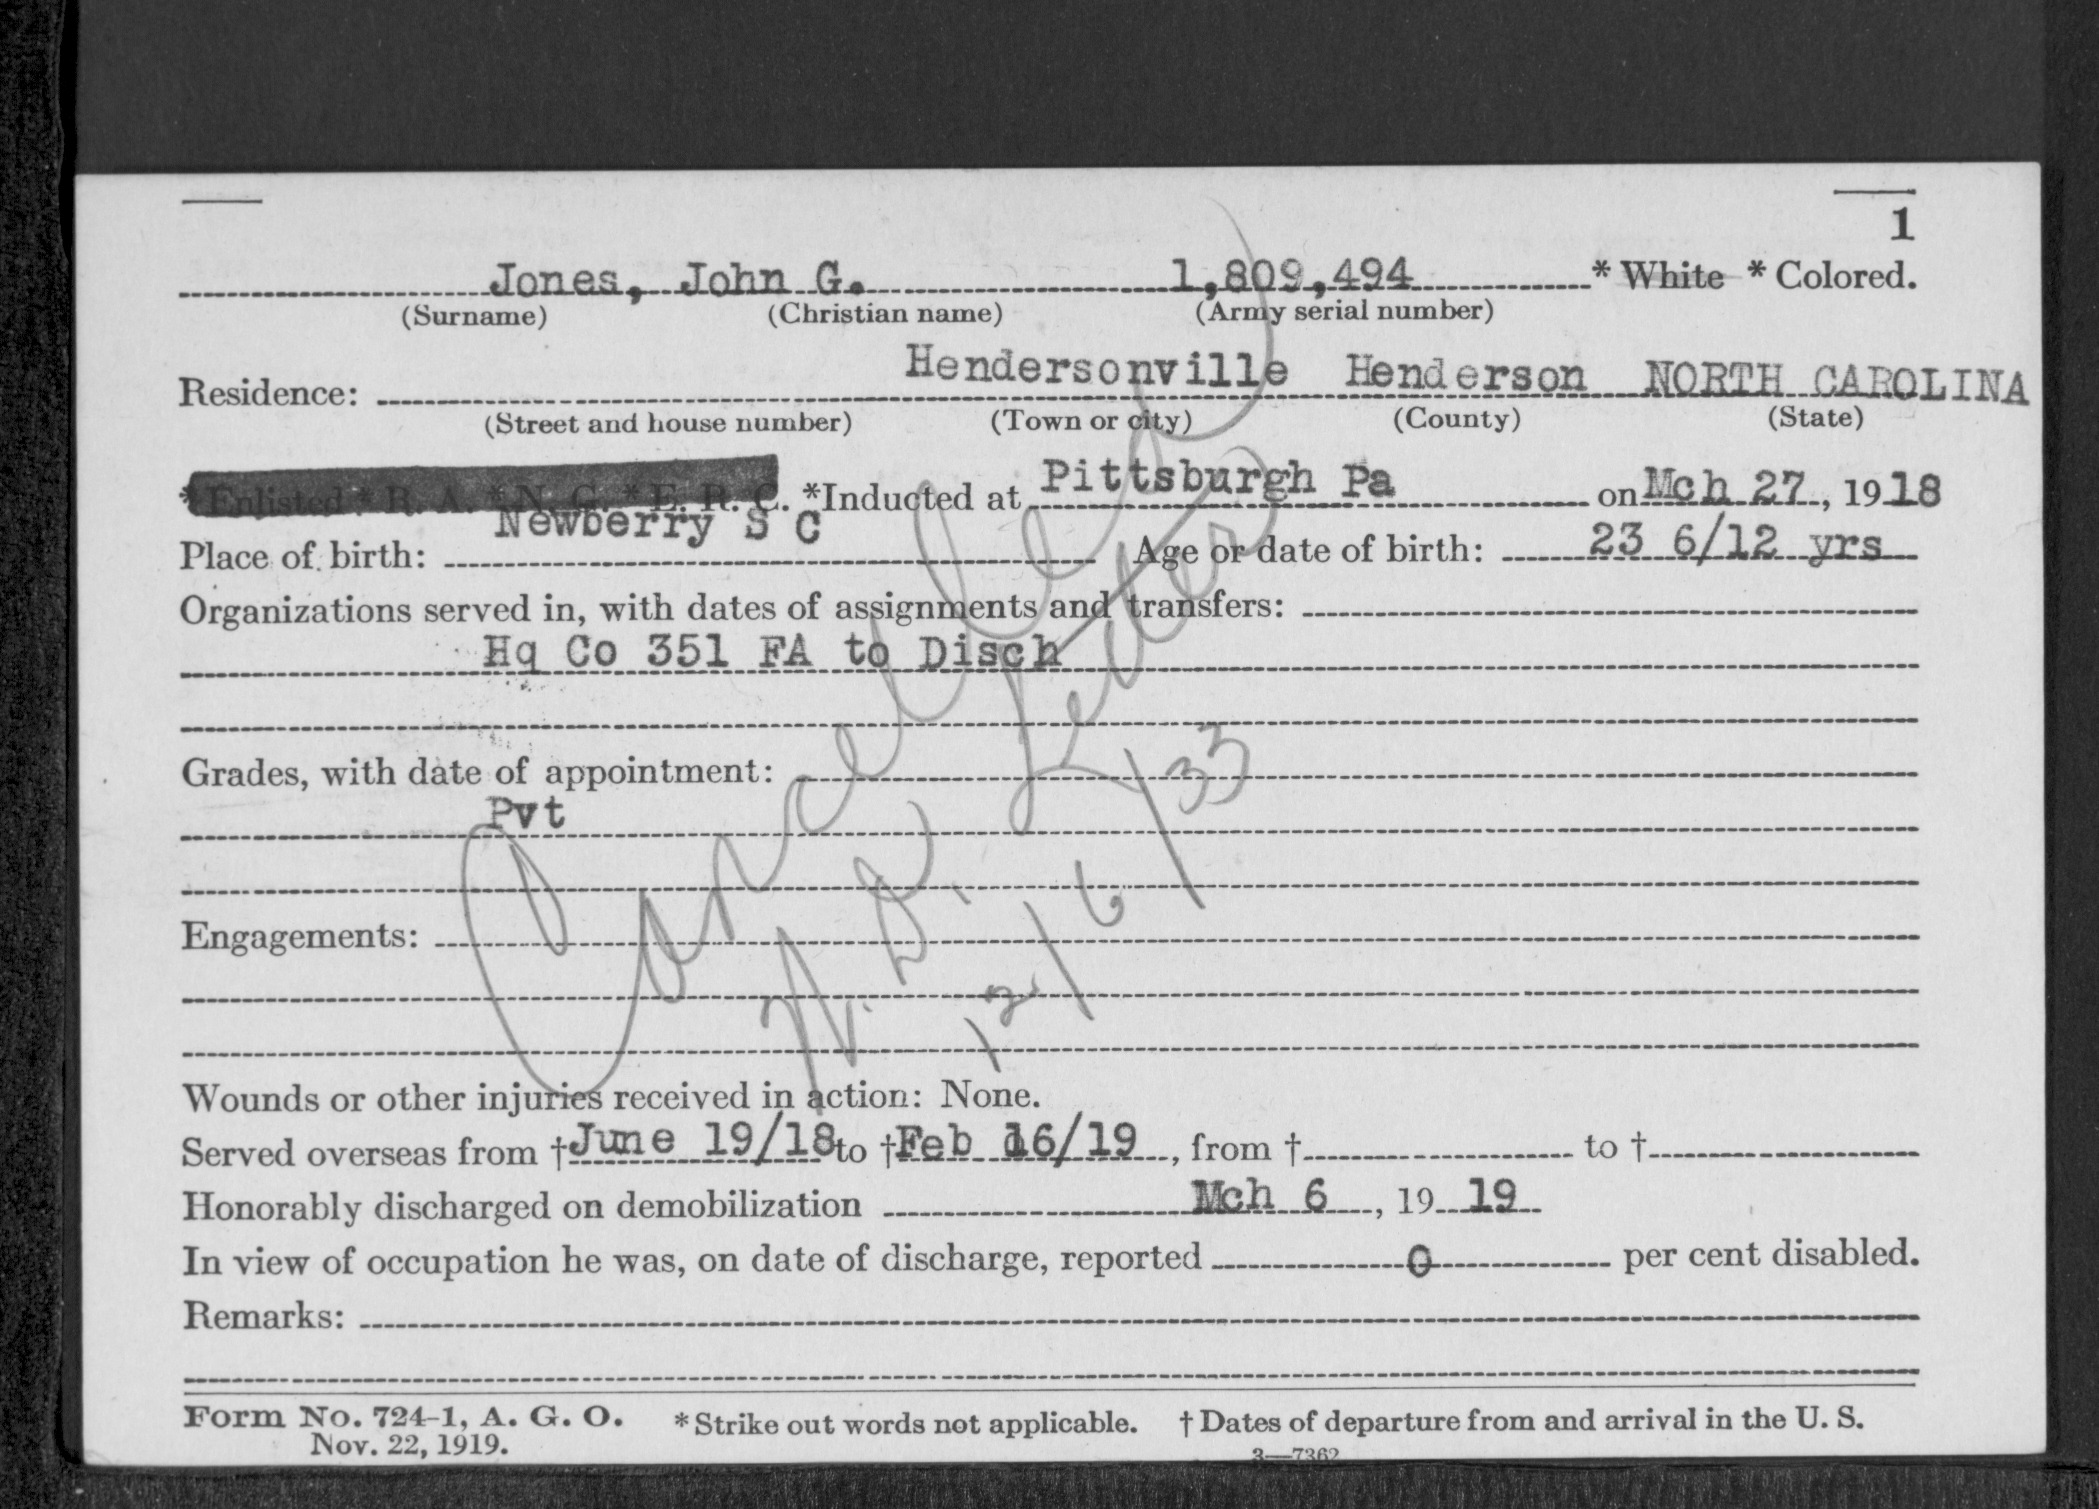 1
Jones, John G. 1,809,494 * White * Colored.
(Surname) (Christian name) (Army serial number)
Residence: Hendersonville Henderson NORTH CAROLINA
(Street and house number) (Town or city) (County) (State)
* Enlisted * R. A. * N. G. * E. R. C. *Inducted at Pittsburgh Pa on Mch 27, 1918
Place of birth: Newberry S C Age or date of birth: 23 6/12 yrs
Organizations served in, with dates of assignments and transfers:
Hq Co 351 FA to Disch
Grades, with date of appointment:
Pvt
Engagements:
Cancelled
W. D. Letter
12/6/33
Wounds or other injuries received in action: None.
Served overseas from †June 19/18 to †Feb 16/19, from † to †
Honorably discharged on demobilization Mch 6, 19 19
In view of occupation he was, on date of discharge, reported 0 per cent disabled.
Remarks:
Form No. 724-1, A. G. O. *Strike out words not applicable. † Dates of departure from and arrival in the U. S.
Nov. 22, 1919. 3—7362